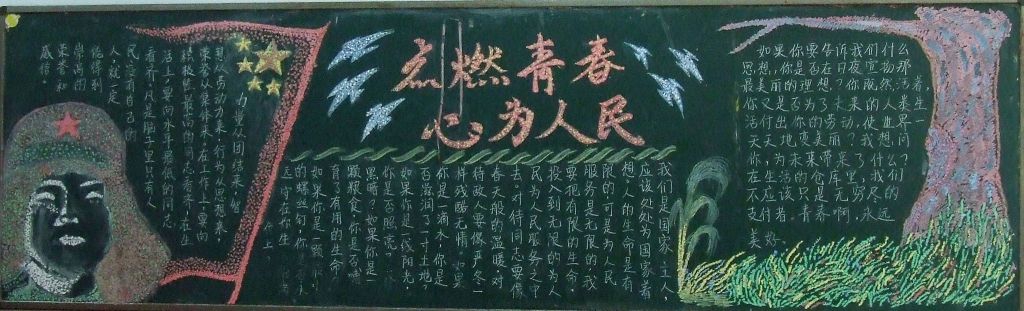 力量从团结来,智
慧从劳动来,行为从思想来,
荣誉从集体来。在工作上,要向
积极性最高的同志看齐,在生
活上,要向水平最低的同志
看齐。凡是脑子里只有人
民、没有自己的
人,就一定
能得到
崇高的
荣誉和
威信.
点燃青春
心为人民
我们是国家主人,
应该处处为国家着
想,人的生命是有
限的,可是,为人民
服务是无限的,我
要把有限的生命,
投入到无限的为人
民为人民服务之中
去。对待同志要像
春天般的温暖,对
待敌人要像严冬一
样残酷无情。如果
你是一滴水,你是
否滋润了一寸土地,
如果你是一线阳光,
你是否照亮
黑暗?如果你是一
颗粮食,你是否哺
育了有用的生命
如果你是一颗
的螺丝钉,你
远守在你生
上.
如果你要告诉我们什么
思想,你是否在日夜宣扬那
最美丽的理想?你既然活着,
你又是否为了未来的人类生
活付出你的劳动,使世界一
天天地变美丽?我想问
你,为未来带来了什么?
在生活的仓库里,我们
不应该只是无穷尽的
支付者。青春啊,永远
美好.